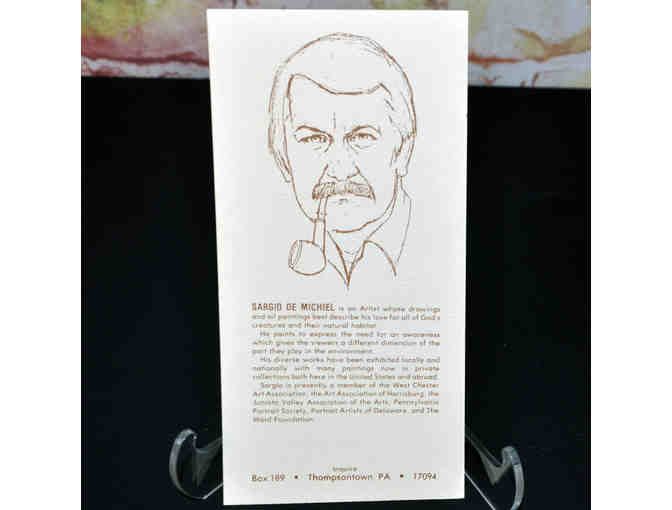 SARGIO DE MICHIEL is an Artist whose drawings
and oil paintings best describe his love for all of God's
creatures and their natural habitat.
He paints to express the need for an awareness
which gives the viewers a different dimension of the
part they play in the environment.
His diverse works have been exhibited locally and
nationally with many paintings now in private
collections both here in the United States and abroad.
Sargio is presently a member of the West Chester
Art Association, the Art Association of Harrisburg, the
Juniata Valley Association of the Arts, Pennsylvania
Portrait Society, Portrait Artists of Delaware, and The
Ward Foundation.
Inquire
Box 189 • Thompsontown PA • 17094